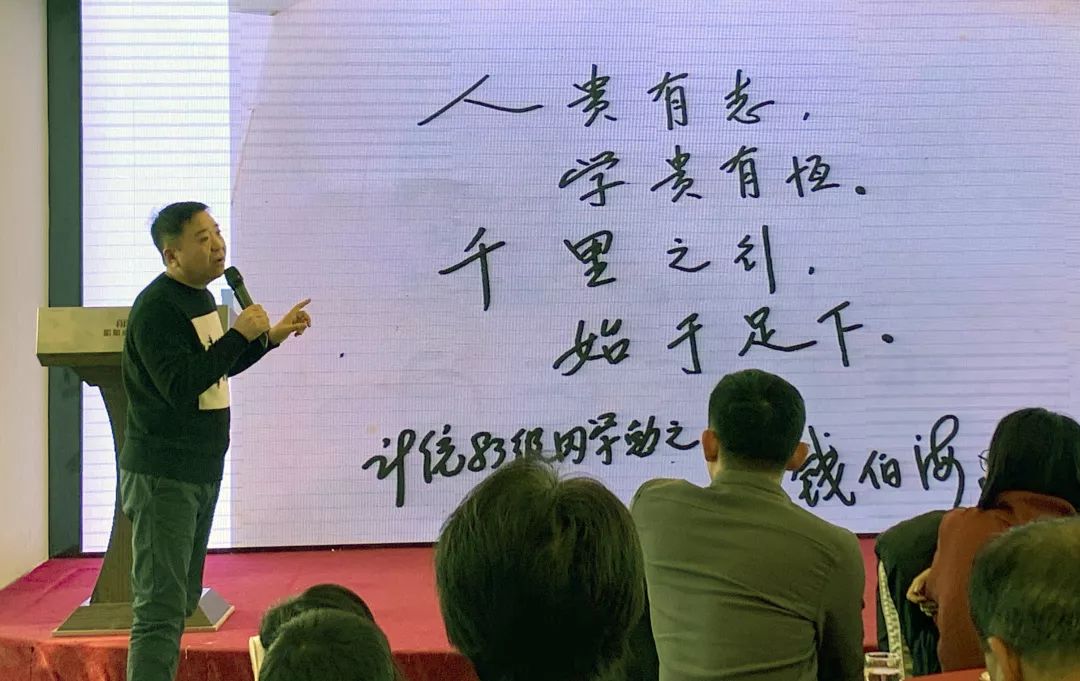 人贵有志,
学贵有恒。
千里之行,
始于足下。
计统83级同学勉之
钱伯海